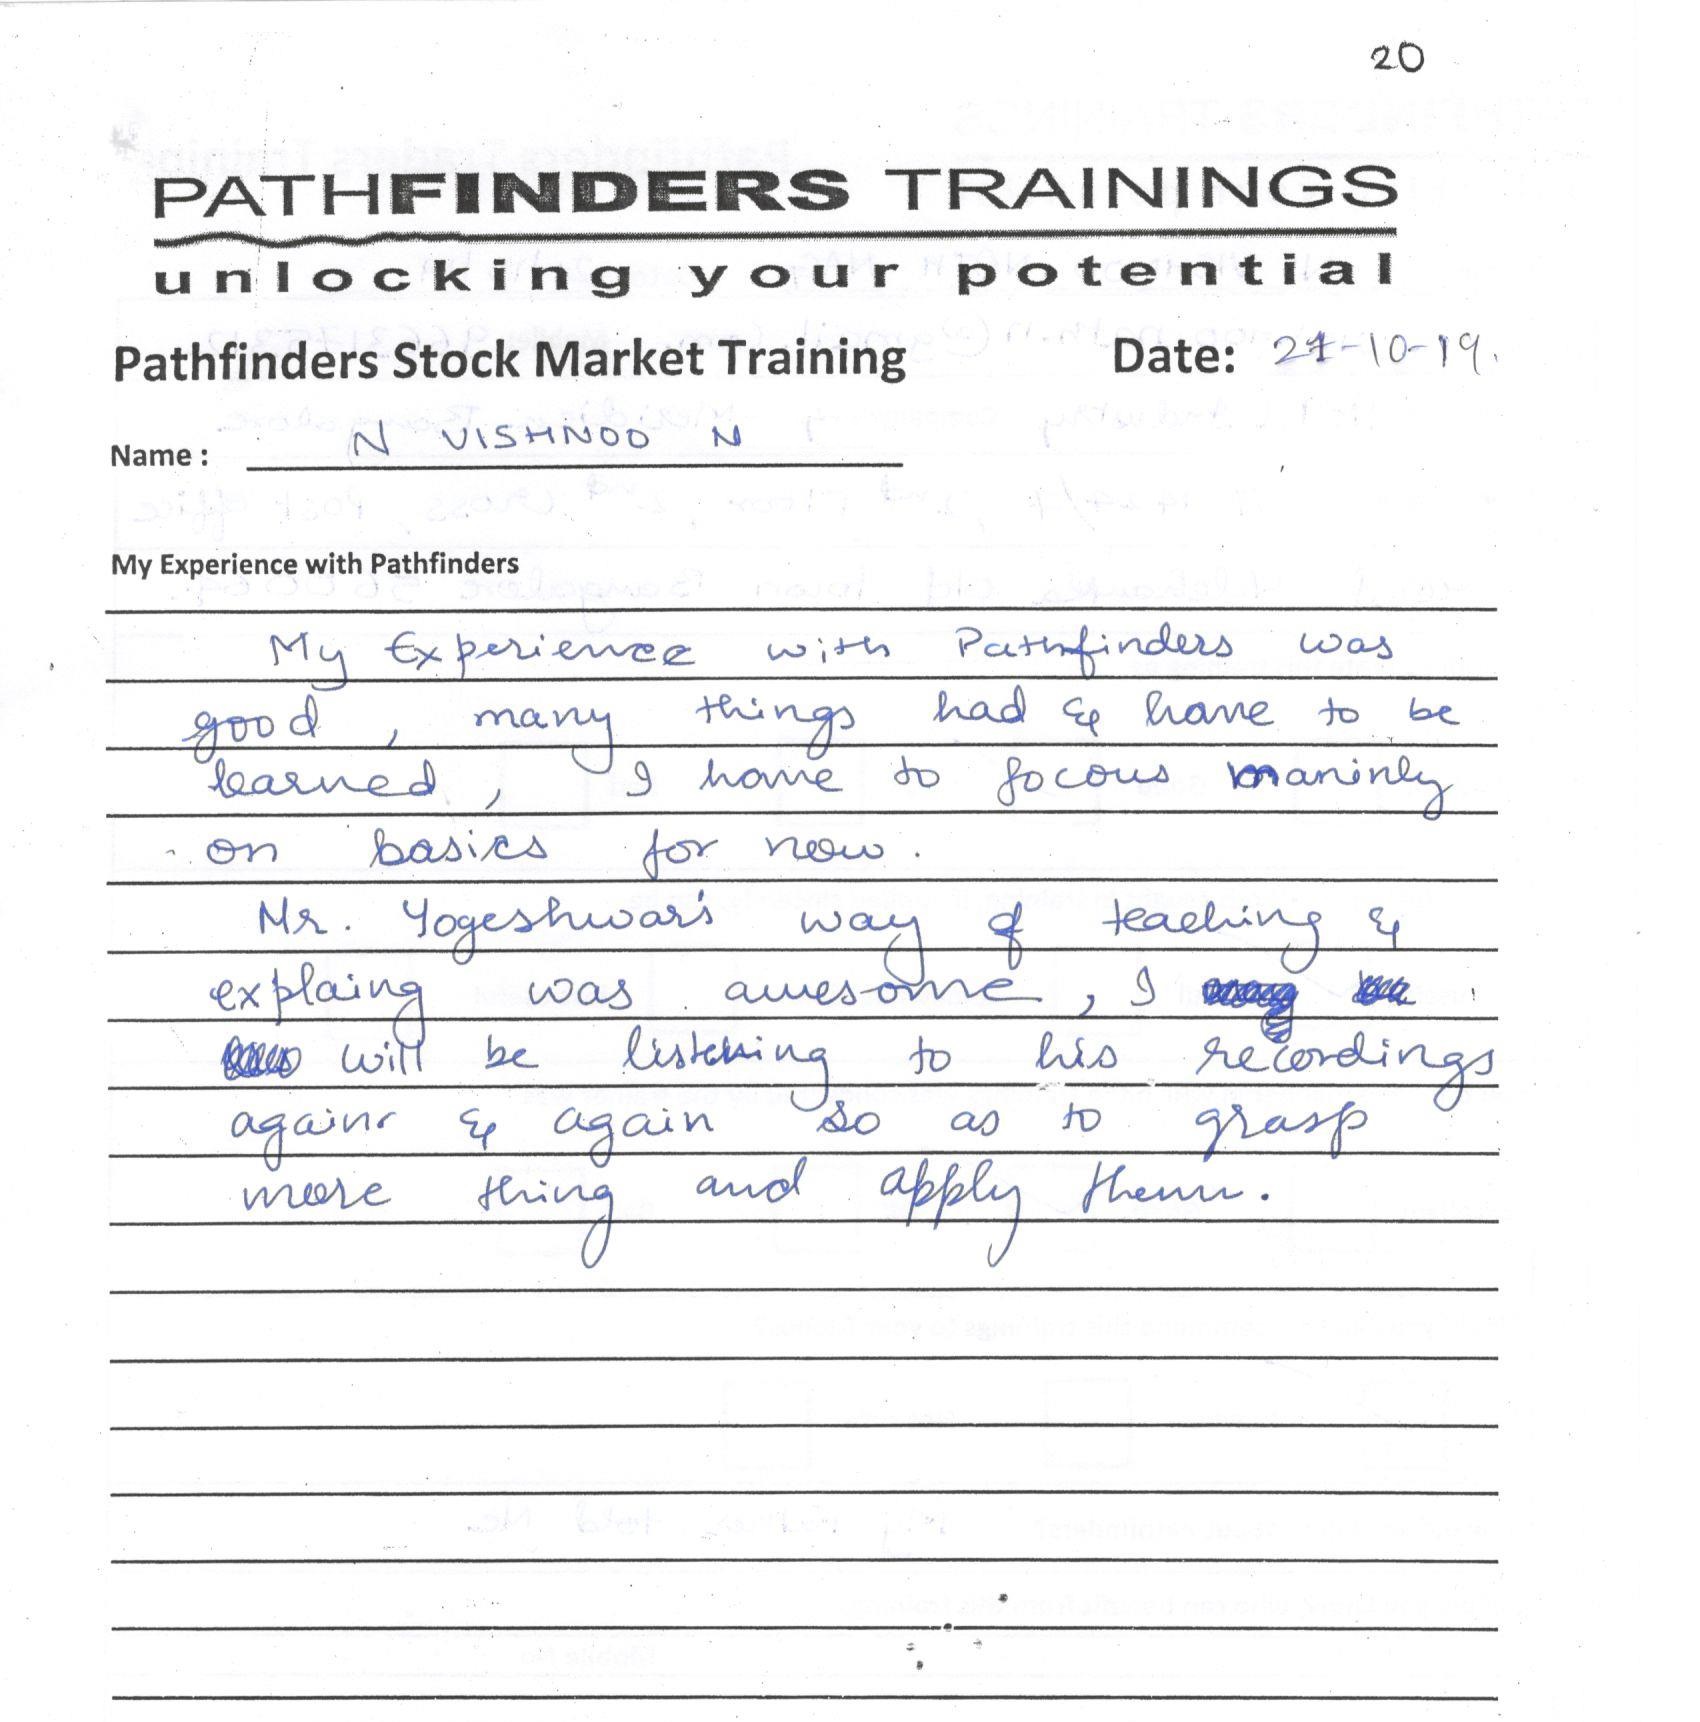 20
PATHFINDERS TRAININGS
unlocking your potential
Pathfinders Stock Market Training Date: 21-10-19.
Name : N VISHNOO N
My Experience with Pathfinders
My Experience with Pathfinders was
good, many things had & have to be
learned, I have to focous maninly
on basics for now.
Mr. Yogeshwar's way of teaching &
explaing was awesome, I
will be listening to his recordings
again & again so as to grasp
more thing and apply them.